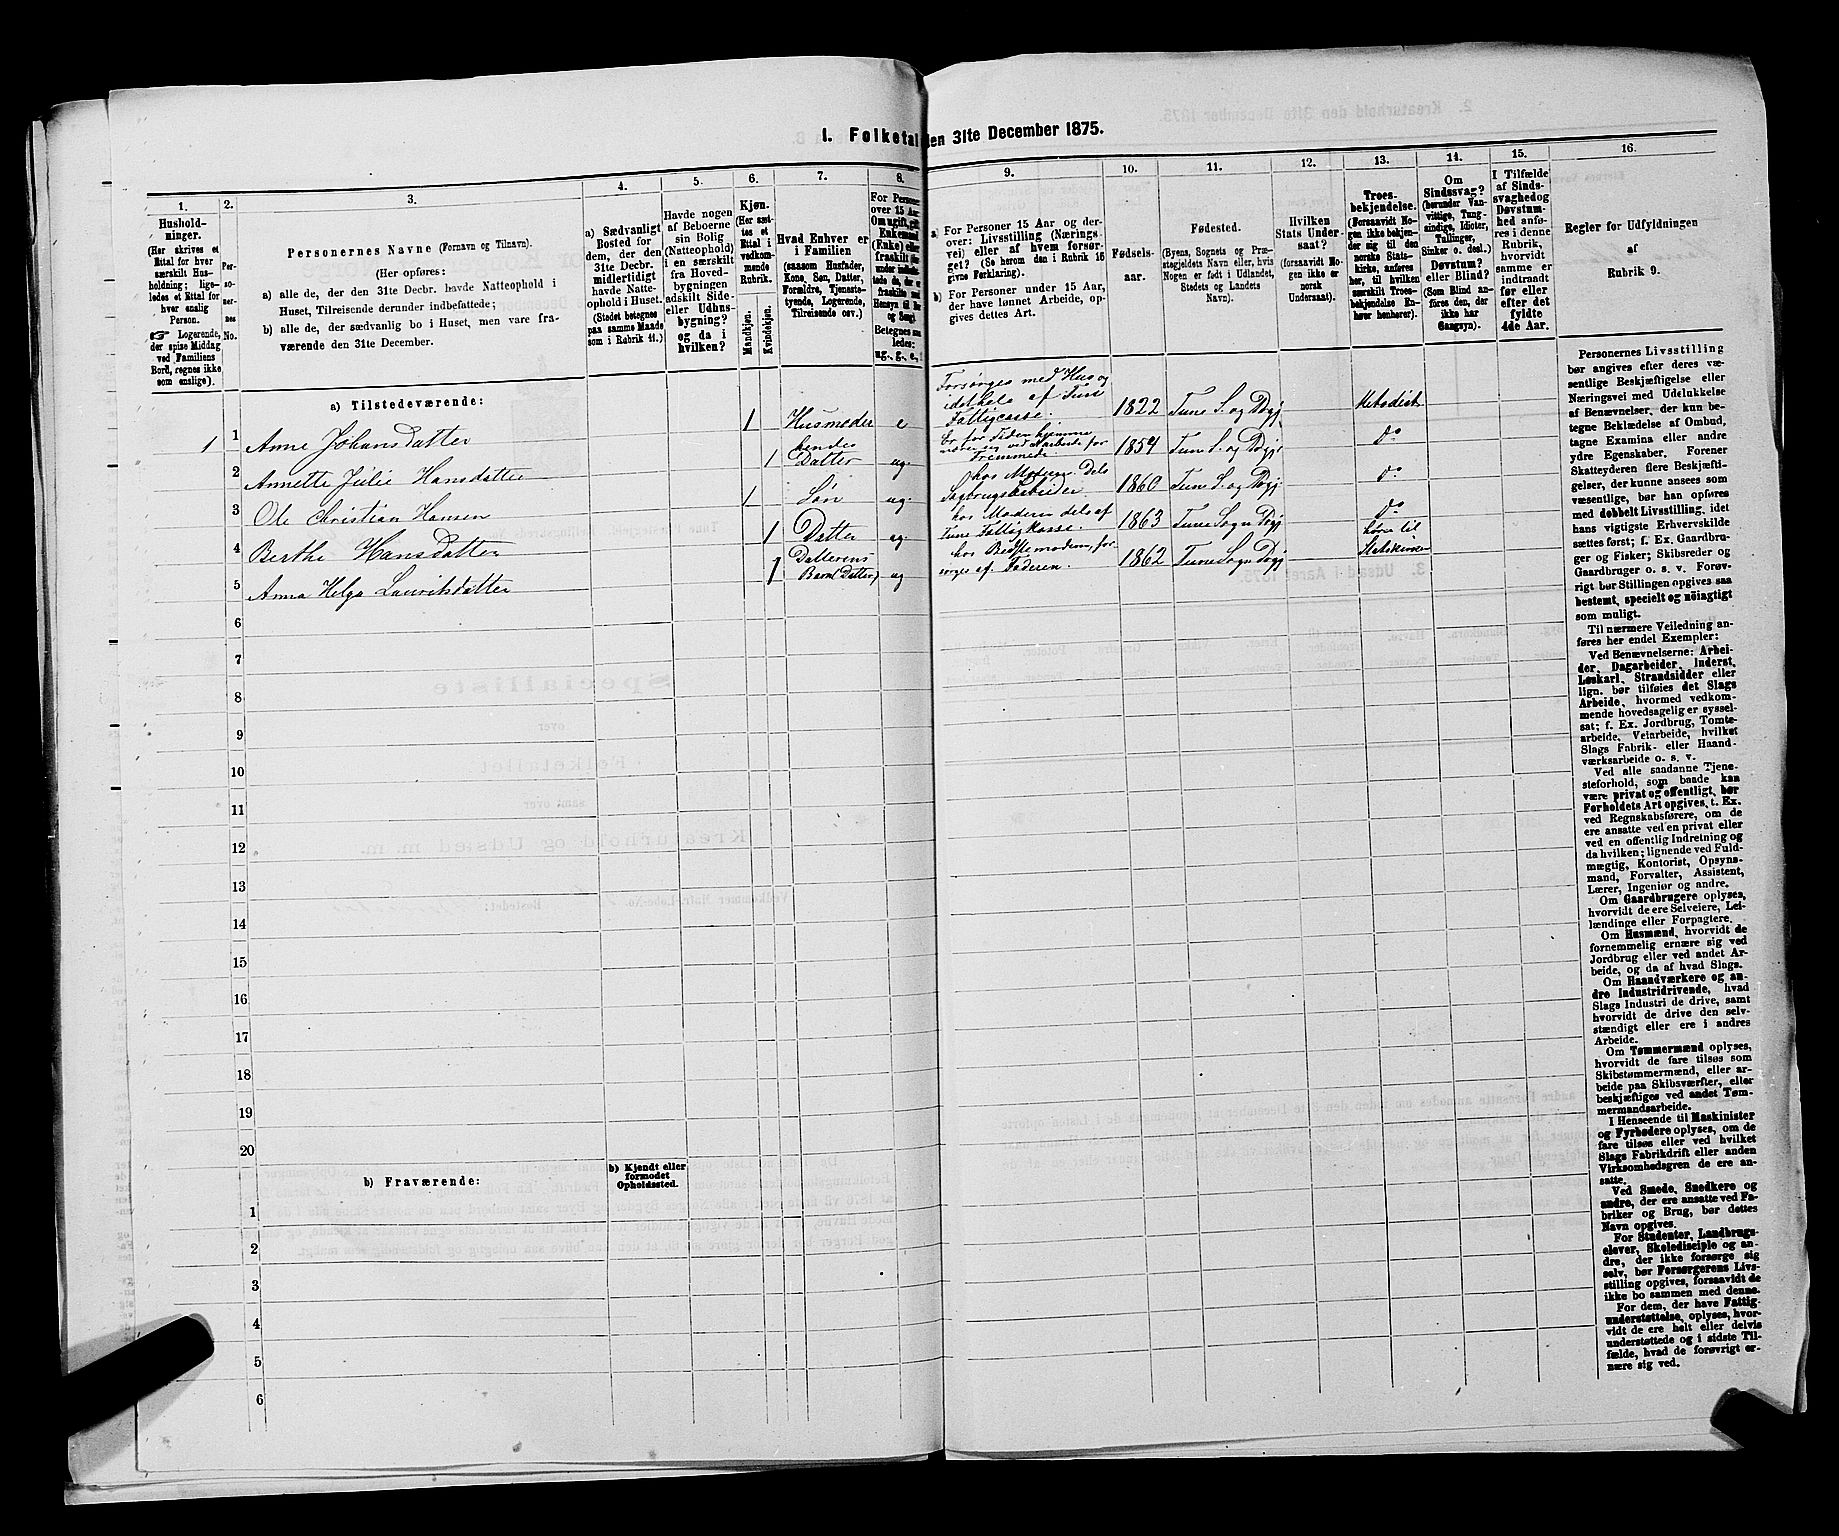 I. Folketal den 31te December 1875.
1. 2. 3. 4. 5. 6. 7. 8. 9. 10. 11. 12. 13. 14. 15. 16.
Hushold-
ninger.
(Her skrives et
Ettal for hver
særskilt Hus-
holdning; lige-
ledes et Ettal for
hver enslig
Person.
☞ Logerende,
der spise Middag
ved Familiens
Bord, regnes ikke
som enslige).
Per-
so-
ner-
nes
No.
Personernes Navne (Fornavn og Tilnavn).
(Her opføres:
a) alle de, der den 31te Decbr. havde Natteophold i
Huset, Tilreisende derunder indbefattede;
b) alle de, der sædvanlig bo i Huset, men vare fra-
værende den 31te December.
a) Sædvanligt
Bosted for
dem, der den
31te Decbr.
midlertidigt
havde Natte-
ophold i Huset.
(Stedet betegnes
paa samme Maade
som i Rubrik 11.)
Havde nogen
af Beboerne
sin Bolig
(Natteophold)
i en særskilt
fra Hoved-
bygningen
adskilt Side-
eller Udhus-
bygning?
og da i
hvilken?
Kjøn.
(Her sæt-
tes et
Ettal i
vedkom-
mende
Rubrik.
Mandkjøn.
Kvindekjøn.
Hvad Enhver er
i Familien
(saasom Husfader,
Kone, Søn, Datter,
Forældre, Tjeneste-
tyende, Logerende,
Tilreisende osv.)
For Personer
over 15 Aar:
Om ugift, gift,
Enkemand
(Enke) eller
fraskilt
Betegnes saa-
ledes:
ug., g., e.,
a) For Personer 15 Aar og der-
over: Livsstilling (Nærings-
vei) eller af hvem forsør-
get? (Se herom den i Rubrik 16
givne Forklaring).
b) For Personer under 15 Aar,
der have lønnet Arbeide, op-
gives dettes Art.
Fødsels-
aar.
Fødested.
(Byens, Sognets og Præ-
stegjeldets Navn eller, hvis
Nogen er født i Udlandet,
Stedets og Landets
Navn).
Hvilken
Stats Under-
saat?
(forsaavidt No-
gen ikke er
norsk
Undersaat).
Troes-
bekjendelse.
(Forsaavidt No-
gen ikke bekjen-
der sig til den
norske Stats-
kirke, anføres
her, til hvilken
særskilt Troes-
bekjendelse En-
hver henhører).
Om
Sindssvag?
(herunder Van-
vittige, Tung-
sindige, Idioter,
Tullinger,
Sinker o. desl.)
Døvstum?
eller Blind?
(Som Blind an-
føres den, der
ikke har
Gangsyn).
I Tilfælde
af Sinds-
svaghed og
Døvstum-
hed anfø-
res i denne
Rubrik,
hvorvidt
samme er
indtraadt
før eller
efter det
fyldte
4de Aar.
Regler for Udfyldningen
af
Rubrik 9.
a) Tilstedeværende:
1 1 Anne Johansdatter 1 Husmoder e Forsørges med Hus og idethele af Tune Fattigcasse. 1822 Tune S. og Pgj Methodist
2 Annette Julie Hansdatter 1 hendes Datter ug. Er for Tiden hjemme nærer sig ved Arbeide for Fremmede 1854 Tune S. og Pgj. do
3 Ole Christian Hansen 1 Søn ug. hos Moderen. Dels Sagbrugsarbeider 1860 Tune S. og Pgj. do
4 Berthe Hansdatter 1 Datter ug. hos Moderen dels af Tune Fattigkasse. 1863 Tune Sogn Pgj do
5 Anna Helga Lauritsdatter 1 Datterens Barn (Datter) ug hos Bedstemoderen, for sørges af Faderen. 1862 Tune Sogn Pgj hører til Statskirken
6
7
8
9
10
11
12
13
14
15
16
17
18
19
20
b) Fraværende:
b) Kjendt eller
formodet
Opholdssted.
1
2
3
4
5
6
Personernes Livsstilling
bør angives efter deres væ-
sentlige Beskjæftigelse eller
Næringsvei med Udelukkelse
af Benævnelser, der kun be-
tegne Beklædelse af Ombud,
tagne Examina eller andre
ydre Egenskaber. Forener
Skatteyderen flere Beskjæfti-
gelser, der kunne ansees som
væsentlige, bør han opføres
med dobbelt Livsstilling, idet
hans vigtigste Erhvervskilde
sættes først; f. Ex. Gaardbru-
ger og Fisker; Skibsreder og
Gaardbruger o. s. v. Forøv-
rigt bør Stillingen opgives saa
bestemt, specielt og nøiagtigt
som muligt.
Til nærmere Veiledning an-
føres her endel Exempler:
Ved Benævnelserne: Arbei-
der, Dagarbeider, Inderst,
Løskarl, Strandsidder eller
lign. bør tilføies det Slags
Arbeide, hvormed vedkom-
mende hovedsagelig er syssel-
sat; f. Ex. Jordbrug, Tomte-
arbeide, Veiarbeide, hvilket
Slags Fabrik- eller Haand-
værksarbeide o. s. v.
Ved alle saadanne Tjene-
steforhold, som baade kan
være privat og offentligt, bør
Forholdets Art opgives, t. Ex.
ved Regnskabsførere, om de
ere ansatte ved en privat eller
ved en offentlig Indretning og
da hvilken; lignende ved Fuld-
mægtig, Kontorist, Opsyns-
mand, Forvalter, Assistent,
Lærer, Ingeniør og andre.
Om Gaardbrugere oplyses,
hvorvidt de ere Selveiere, Lei-
lændinge eller Forpagtere.
Om Husmænd, hvorvidt de
fornemmelig ernære sig ved
Jordbrug eller ved andet Ar-
beide, og da af hvad Slags.
Om Haandværkere og an-
dre Industridrivende, hvad
Slags Industri de drive, samt
hvorvidt de drive den selv-
stændigt eller ere i andres
Arbeide.
Om Tømmermænd oplyses,
hvorvidt de fare tilsøs som
Skibstømmermænd, eller ar-
beide paa Skibsværfter, eller
beskjæftiges ved andet Tøm-
mermandsarbeide.
I Henseende til Maskinister
og Fyrbødere oplyses, om de
fare tilsøs eller ved hvilket
Slags Fabrikdrift eller anden
Virksomhedsgren de ere an-
satte.
Ved Smede, Snedkere og
andre, der ere ansatte ved Fa-
briker og Brug, bør dettes
Navn opgives.
For Studenter, Landbrugs-
elever, Skoledisciple og an-
dre, der ikke forsørge sig
selv, bør Forsørgerens Livs-
stilling opgives, forsaavidt de
ikke bo sammen med denne.
For dem, der have Fattig-
understøttelse, oplyses, hvor-
vidt de ere helt eller delvis
understøttede og i sidste Til-
fælde, hvad de forøvrigt er-
nære sig ved.